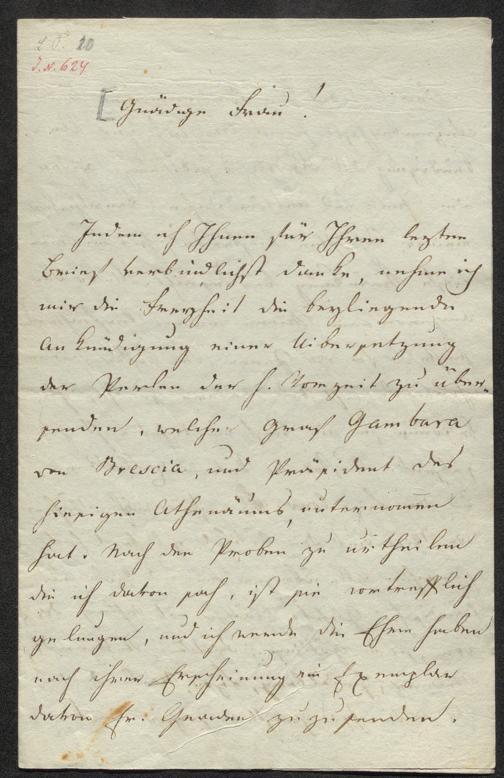 20
J.N. 624
Gnädige Frau!
Indem ich Ihnen für Ihren lezten
Brief verbindlichst danke, nehme ich
mir die Freyheit die beyliegende
Ankündigung einer Uibersetzung
der Perlen der h. Vorzeit zu über-
senden, welche Graf Gambara
von Brescia, und Präsident des
hiesigen Athenäums, unternomen
hat. Nach den Proben zu urtheilen
die ich davon sah, ist sie vortrefflich
gelungen, und ich werde die Ehre haben
nach ihrer Erscheinung ein Exemplar
davon Er. Gnaden zuzusenden.